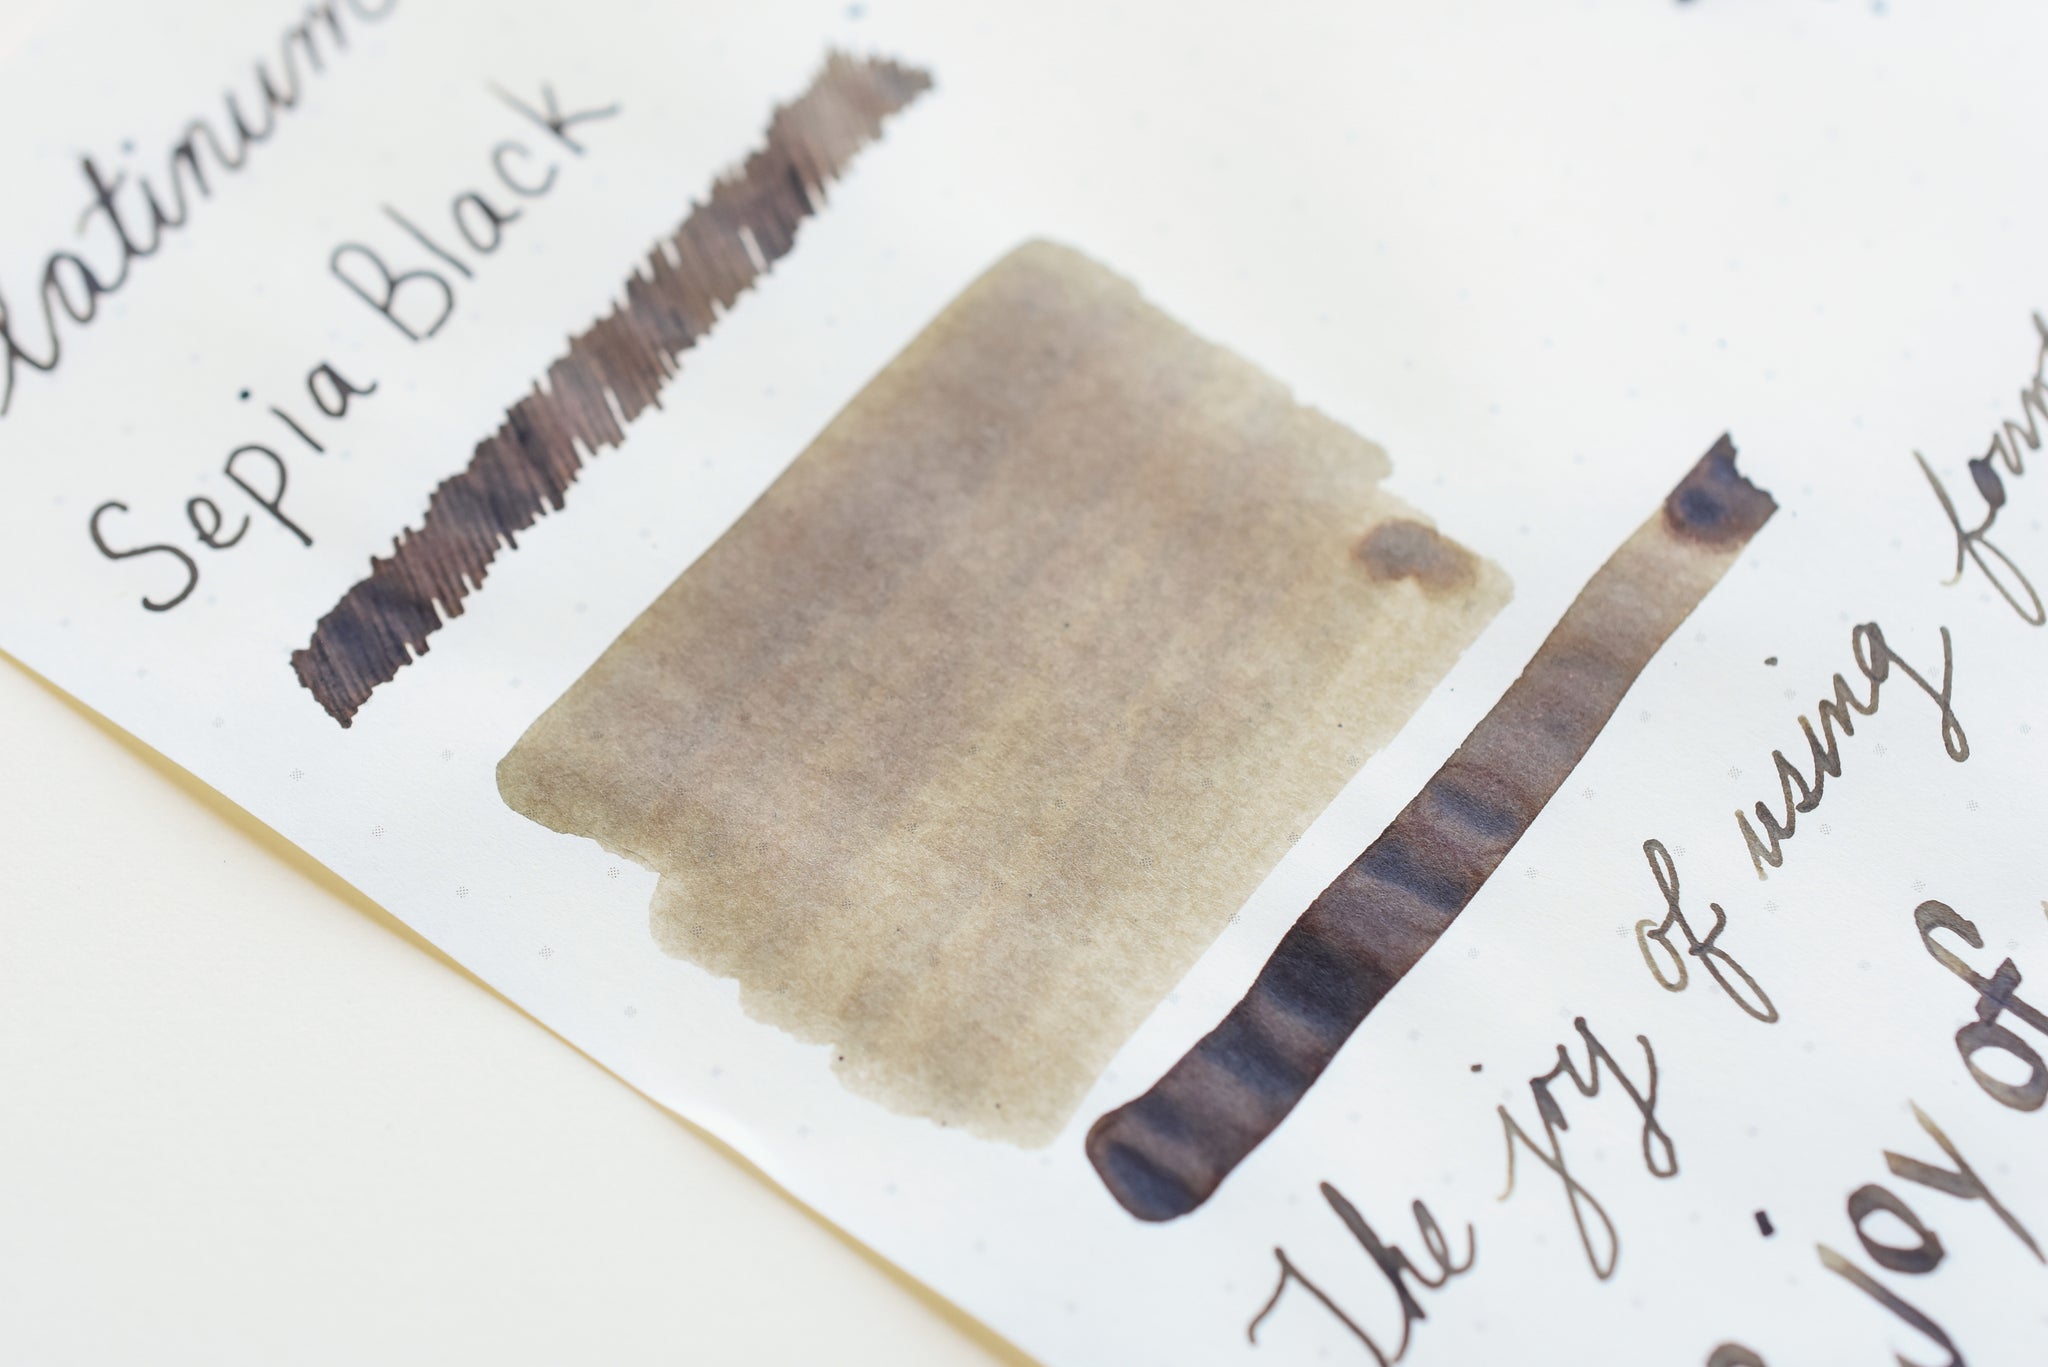 latinum
Sepia Black
The joy of using foun
joy of